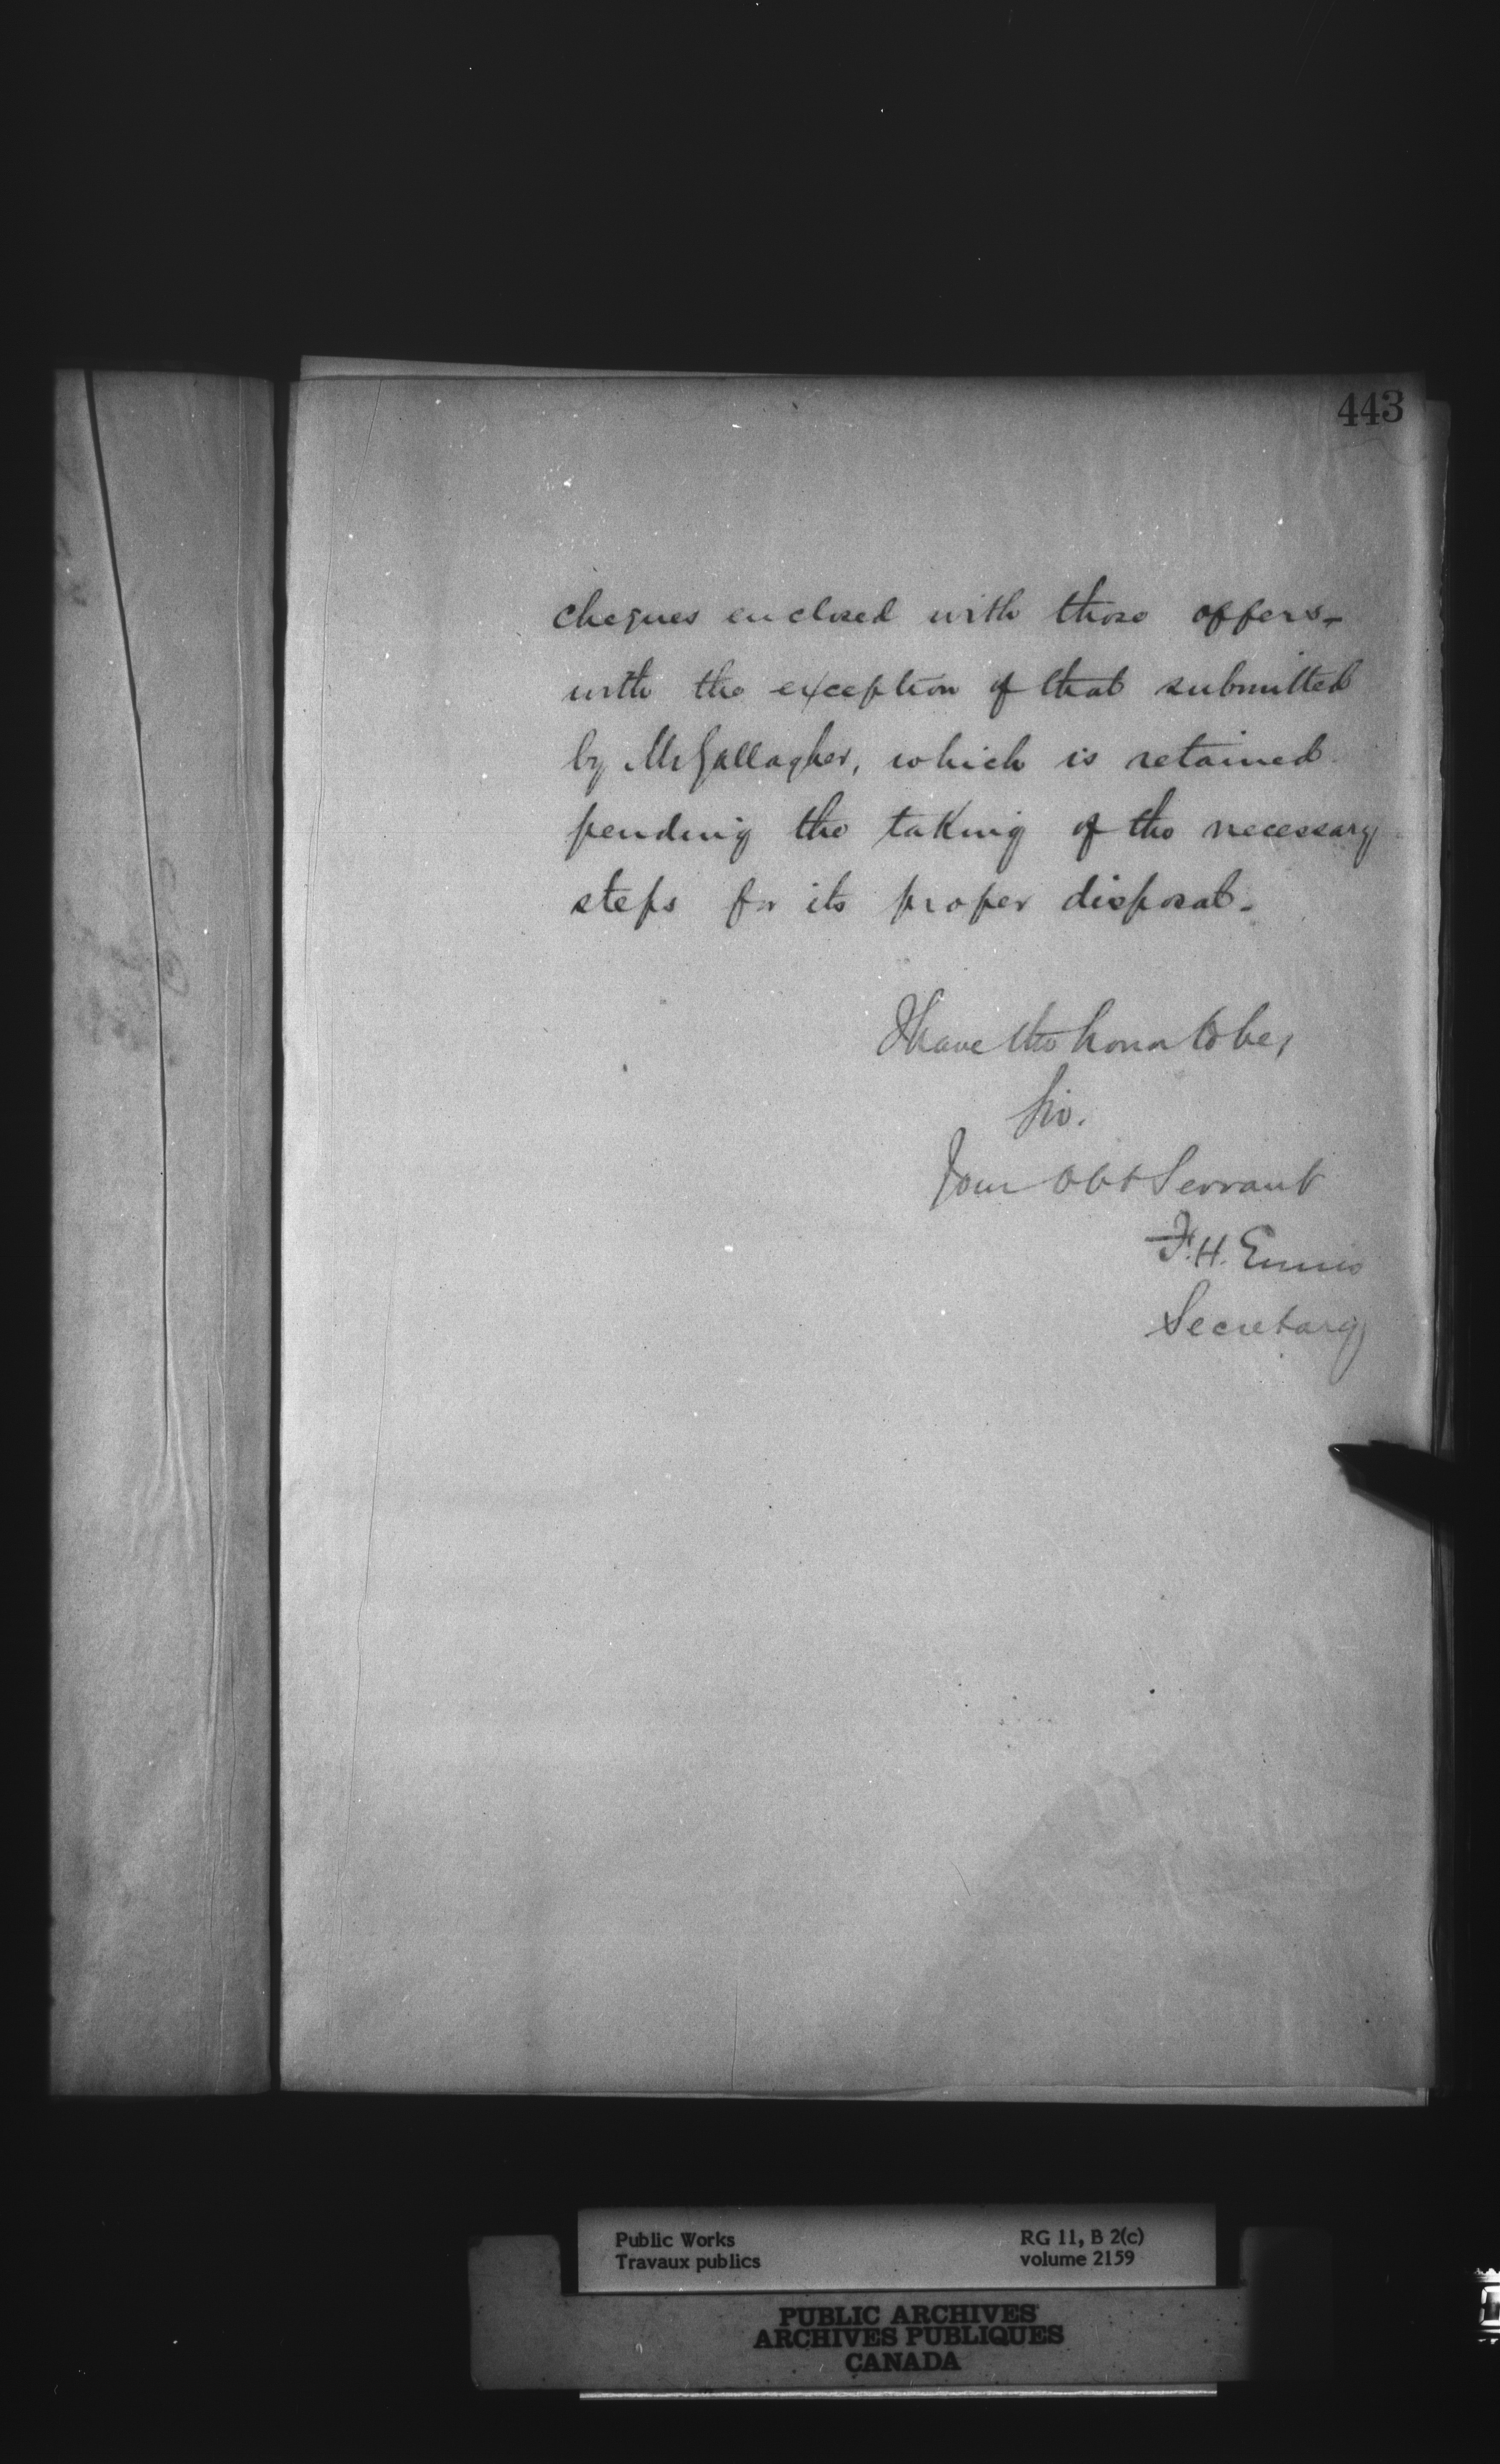 443
cheques enclosed with those offers -
with the exception of that submitted
by Mr Gallagher, which is retained
pending the taking of the necessary
steps for its proper disposal -
I have the honor to be,
Sir.
Your Obt Servant
F. H. Ennis
Secretary
Public Works
Travaux publics
RG 11, B 2(c)
volume 2159
PUBLIC ARCHIVES
ARCHIVES PUBLIQUES
CANADA